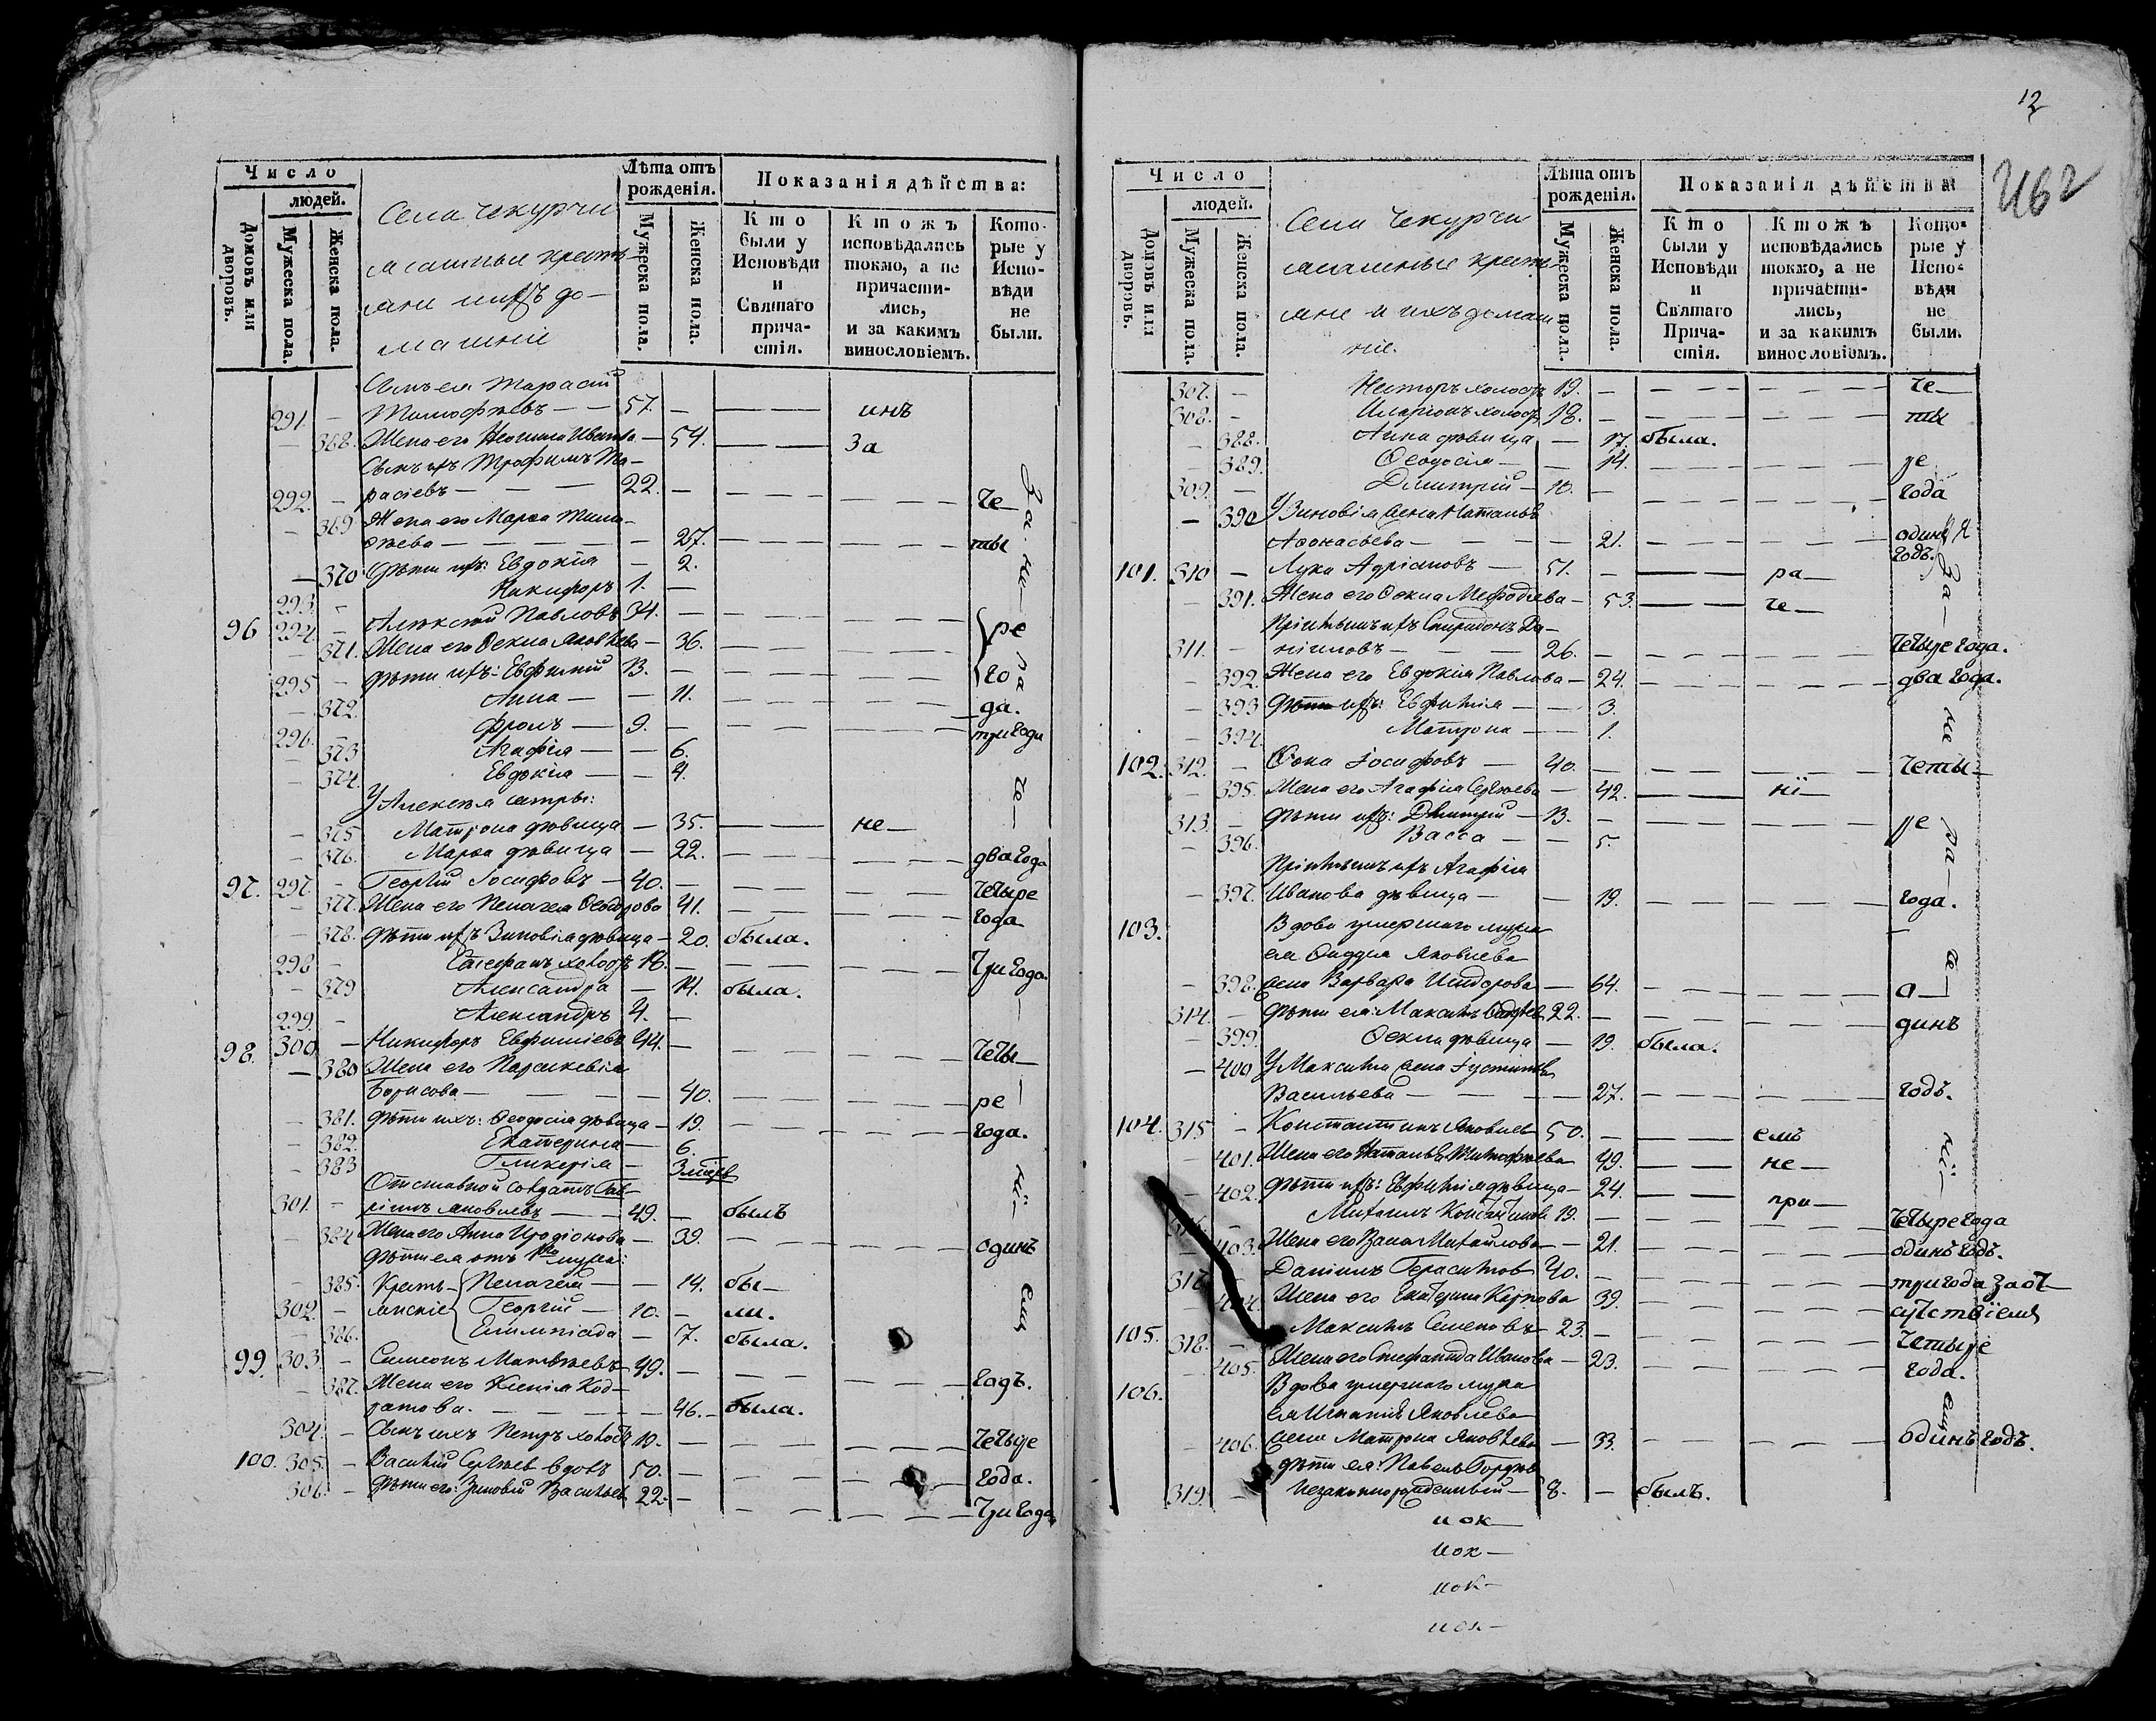 Число
людей.
Домовъ или дворовъ.
Мужеска пола.
Женска пола.
Села Чекурчи
ясашные кресть-
яне и ихъ до-
машніе
Лѣта отъ рожденія.
Мужеска пола.
Женска пола.
Показанія дѣйства:
Кто были у Исповѣди и Святаго причастія.
Ктожъ исповѣдались токмо, а не причастились, и за какимъ винословіемъ.
Которые у Исповѣди не были.
Тарасій
291. - Тимофѣевъ - - 57. - инъ
- 368. Жена его - 54. За
Сынъ ихъ Трофимъ Та-
292. - расіевъ - - 22. - Че-
- 369 Жена его Марѳа Тимо-
ѳѣева - - 27. ты
- 370 Дѣти ихъ: Евдокія - 2.
293. - Никифоръ 1. -
96 294. - Алексѣй Павловъ 34. - ре
- 371. Жена его Ѳекла Яковлева - 36.
295 - Дѣти ихъ: Евфимій 13. - го
- 372. Анна - - 11. да.
296. - Фролъ - 9. - три года
- 373 Агафія - - 6.
- 374. Евдокія - - 4.
У Алексѣя сестры:
- 375 Матрона дѣвица - 35. не-
- 376. Марѳа дѣвица - 22. два года
97. 297. - Георгій Іосифовъ - 40. - Четыре
- 377. Жена его Пелагея Ѳеодорова 41. года
- 378. Дѣти ихъ Зиновія дѣвица - 20. была.
298 - Стефанъ холостъ 18. - Три года.
- 379 Александра - 14. была.
299. - Александръ 4. -
98. 300 - Никифоръ Евфиміевъ 44. - Четы-
- 380 Жена его Параскевія
Борисова - - 40. ре
- 381. Дѣти ихъ: Ѳеодосія дѣвица - 19. года.
- 382. Екатерина - 6.
- 383 Гликерія - 3 мѣсяцевъ
Отставной солдатъ Гав-
301. - ріилъ Яковлевъ - - 49. - былъ
- 384 Жена его Анна Иродіонова - 39. одинъ
Дѣти ея отъ 1го мужа:
- 385. Кресть- Пелагея - - 14. бы-
302. - янскіе Георгій - 10. - ли.
- 386. Елимпіада - 7. была.
99. 303. - Симеонъ Матвѣевъ 49. - годъ.
- 387. Жена его Ксенія Код-
ратова. - - 46. - была.
304. - Сынъ ихъ Петръ холостъ 19. - Четыре
100. 305. - Василій Сергѣевъ вдовъ 50. - года.
306. - Дѣти его: Зиновій Васильевъ 22. - Три года
За-
не-
ра-
че-
ні-
емъ
12
462
Число
людей.
Домовъ или дворовъ.
Мужеска пола.
Женска пола.
Села Чекурчи
ясашные кресть-
яне и ихъ домаш-
ніе.
Лѣта отъ рожденія.
Мужеска пола.
Женска пола.
Показанія дѣйства:
Кто были у Исповѣди и Святаго Причастія.
Ктожъ исповѣдались токмо, а не причастились, и за какимъ винословіемъ.
Которые у Исповѣди не были.
307. - Несторъ холостъ 19. - Че-
308. - Иларіонъ холостъ 18. - ты
- 388. Анна дѣвица - 17. была.
- 389. Ѳеодосія - - 14. ре
309. - Димитрій - 10. - года
- 390 У Зиновія жена Наталья
Аѳонасьева - - 21. одинъ
годъ.
101. 310 - Лука Адріановъ - 51. - ра-
- 391. Жена его Ѳекла Меѳодіева - 53. че-
Пріемышъ ихъ Спиридонъ Да-
311. - ніиловъ - - 26. - Четыре года.
- 392. Жена его Евдокія Павлова - 24. два года.
- 393 Дѣти ихъ: Евфимія - - 3.
- 394. Матрона - - 1.
102. 312. - Ѳока Іосифовъ - 40. - Четы-
- 395. Жена его Агафія Сергѣева - 42. ні-
313. - Дѣти ихъ: Дмитрій - 13. - ре
- 396. Васса - - 5.
Пріемышъ ихъ Агафія
- 397. Иванова дѣвица - - 19. года.
103. Вдова умершаго мужа
ея Яковлева
- 398. жена Варвара - 64. о-
314. - Дѣти ея: Максимъ 22. - динъ
- 399. Ѳекла дѣвица - 19. была.
- 400 У Максима жена
Васильева - - 27. годъ.
104. 315 - Константинъ Яковлевъ 50. - емъ
- 401. Жена его Наталья Тимофѣева 49. не-
- 402. Дѣти ихъ: Евфимія дѣвица - 24. ра-
Михаилъ Константиновъ 19. - Четыре года
- 403. Жена его Михайлова - 21. одинъ годъ.
317. - Даніилъ Герасимовъ 40. - три года за от-
Жена его Екатерина Карпова 39. сутствіемъ
105. 318. - Максимъ Семеновъ - 23. - Четыре
- 405. Жена его Стефанида Иванова - 23. года.
106. Вдова умершаго мужа
ея Игнатія Яковлева
- 406. жена Матрона Яковлева - 33. одинъ годъ.
дѣти ея: Павелъ
319. - незаконнорожденный - 8. - былъ.
За-
не
ра-
че-
ні-
емъ